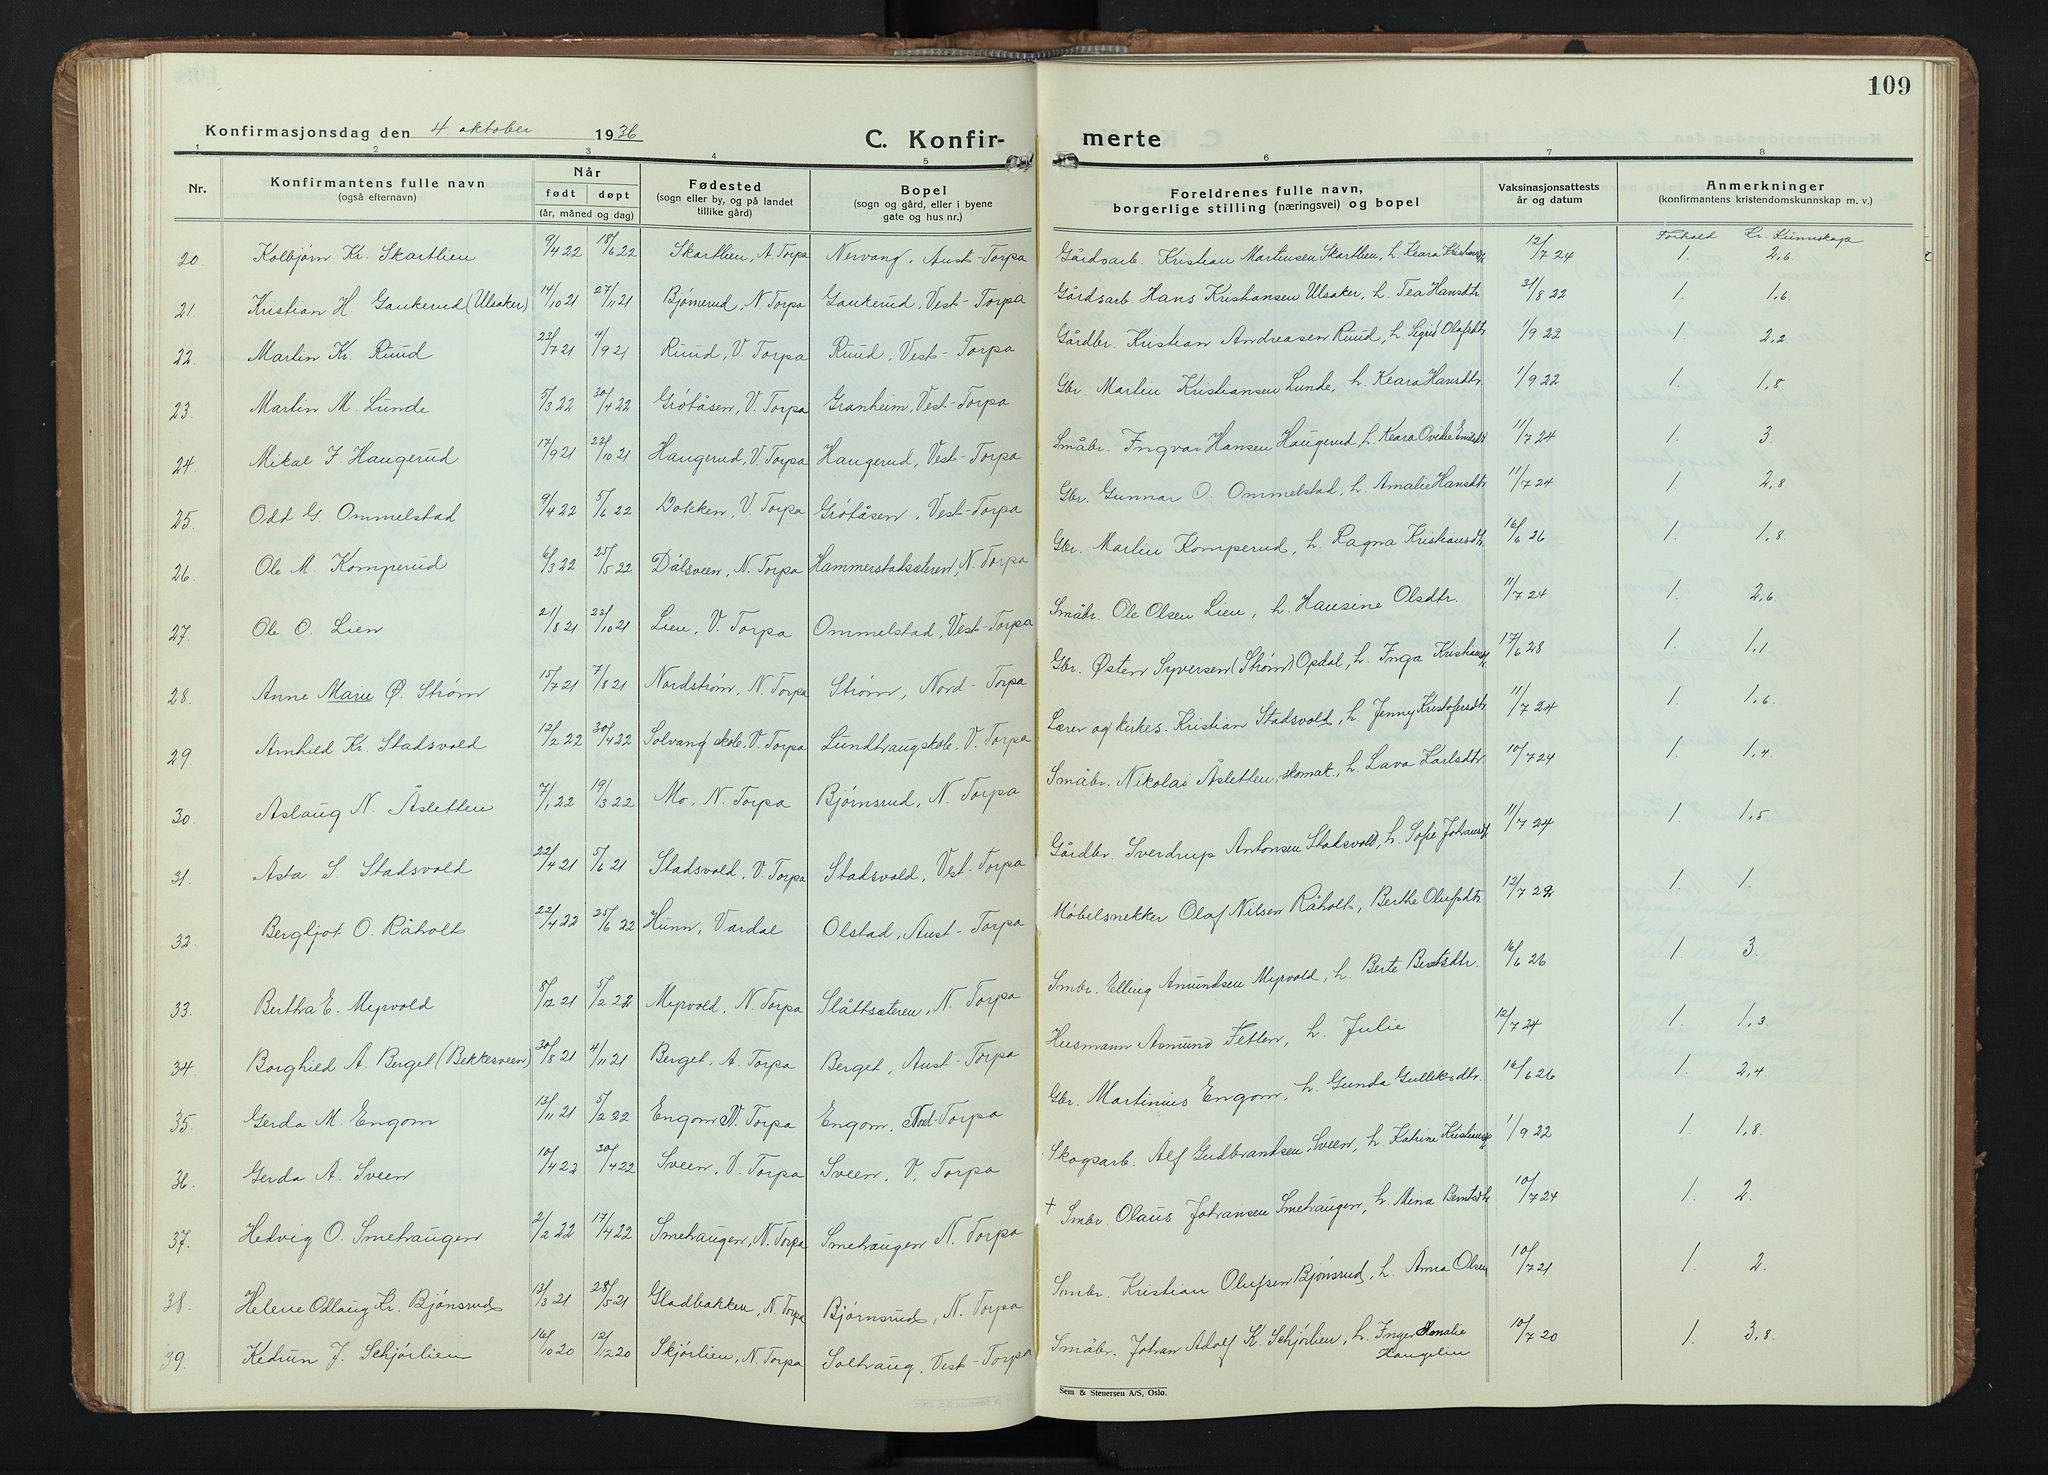 109
Konfirmasjonsdag den 4. oktober 1936
C. Konfirmerte
1 2 3 4 5 6 7 8
Nr. Konfirmantens fulle navn (også efternavn) Når født døpt (år, måned og dag) Fødested (sogn eller by, og på landet tillike gård) Bopel (sogn og gård, eller i byene gate og hus nr.) Foreldrenes fulle navn, borgerlige stilling (næringsvei) og bopel Vaksinasjonsattests år og datum Anmerkninger (konfirmantens kristendomskunnskap m. v.)
Forhold Kr. Kunnskap
20. Kolbjørn Kr. Skartlien 9/4 22 18/6 22 Skartlien, A. Torpa Nervang, Aust-Torpa Gårdsarb. Kristian Martinsen Skartlien, h. Keara 12/7 24 1. 2,6
21. Kristian H. Gaukerud (Ulsaker) 14/10 21 27/11 21 Bjømerud, N. Torpa Gaukerud, Vest-Torpa Gårdsarb. Hans Kristiansen Ulsaker, h. Tea Hansdtr 31/8 22 1. 1,6
22. Martin Kr. Ruud 23/7 21 4/9 21 Ruud, V. Torpa Ruud, Vest-Torpa Gårdbr. Kristian Andreasen Ruud, h. Sigrid Olafsdtr 1/9 22 1. 2,2
23. Martin M. Lunde 5/3 22 30/4 22 Grøtåsen, V. Torpa Granheim, Vest-Torpa Gbr. Martin Kristiansen Lunde, h. Keara Hansdtr. 1/9 22 1. 1,8
24. Mikal I. Haugerud 17/9 21 23/10 21 Haugerud, V. Torpa Haugerud, Vest-Torpa Småbr. Ingvar Hansen Haugerud h. Keara Ovidie 11/7 24 1. 3.
25. Odd G. Ommelstad 9/4 22 5/6 22 Dokken, V. Torpa Grøtåsen, Vest-Torpa Gbr. Gunnar O. Ommelstad, h. Amalie Hansdtr 11/7 24 1. 2,8
26. Ole M. Komperud 6/3 22 25/5 22 Dalsveen, N. Torpa Hammerstadsæteren, N. Torpa Gbr. Martin Komperud, h. Ragna Kristiansdtr. 16/6 26 1. 1,8
27. Ole O. Lien 21/8 21 23/10 21 Lien, V. Torpa Ommelstad, Vest-Torpa Småbr. Ole Olsen Lien, h. Hansine Olsdtr. 11/7 24 1. 2,6
28. Anne Marie Ø. Strøm 15/7 21 7/8 21 Nordstrøm, N. Torpa Strøm, Nord-Torpa Gbr. Østen Syversen (Strøm) Opdal, h. Inga 17/6 28 1. 1,1
29. Arnhild Kr. Stadsvold 12/2 22 30/4 22 Solvang skole, V. Torpa Lundhaugskole, V. Torpa Lærer og kirkes. Kristian Stadsvold, h. Jenny Kristofersdtr 11/7 24 1. 1,6
30. Aslaug N. Åsletten 7/1 22 19/3 22 Mo, N. Torpa Bjørnsrud, N. Torpa Småbr. Nikolai Åsletten, skomak., h. Lava Karlsdtr. 10/7 24 1. 1,4
31. Asta S. Stadsvold 22/4 21 5/6 21 Stadsvold, V. Torpa Stadsvold, Vest-Torpa Gårdbr. Sverdrup Antonsen Stadsvold, h. Sofie 11/7 24 1. 1,5
32. Bergljot O. Råholt 22/4 22 25/6 22 Hunn, Vardal Olstad, Aust-Torpa Møbelsnekker Olaf Nilsen Råholt, Berthe Olufsdtr. 12/7 29 1. 1.
33. Bertha E. Myrvold 8/12 21 5/2 22 Myrvold, N. Torpa Slåttsæteren, N. Torpa Smbr. Elling Amundsen Myrvold, h. Berte Berntsdtr. 16/6 26 1. 3.
34. Borghild A. Berget (Bekkesveen) 30/8 21 4/11 21 Berget, A. Torpa Berget, Aust-Torpa Husmann Asmund Fetten, h. Julie 12/7 24 1. 1,3
35. Gerda M. Engom 13/11 21 5/2 22 Engom N. Torpa Engom, Nord-Torpa Gbr. Martinius Engom, h. Gunda Gulleksdtr. 16/6 26 1. 2,4
36. Gerda A. Sveen 10/4 22 30/4 22 Sveen, V. Torpa Sveen, V. Torpa Skogsarb. Alf Gudbrandsen Sveen, h. Katrine 1/9 22 1. 1,8
37. Hedvig O. Smehaugen 2/2 22 17/4 22 Smehaugen, N. Torpa Smehaugen N. Torpa † Smbr. Olaus Johansen Smehaugen, h. Mina Berntsdtr 10/7 24 1. 2.
38. Helene Odlaug Kr. Bjønsrud 13/3 21 28/5 21 Gladbakken, N. Torpa Bjørnsrud, N. Torpa Smbr. Kristian Olufsen Bjønsrud, h. Anna Olsen 10/7 21 1. 2.
39. Kedrun J. Schjørlien 16/10 20 12/12 20 Skjørlien, N. Torpa Solhaug, Vest-Torpa Småbr. Johan Adolf K. Schjørlien, h. Inger Haugelin 10/7 20 1. 3,8
Sem & Stenersen A/S, Oslo.